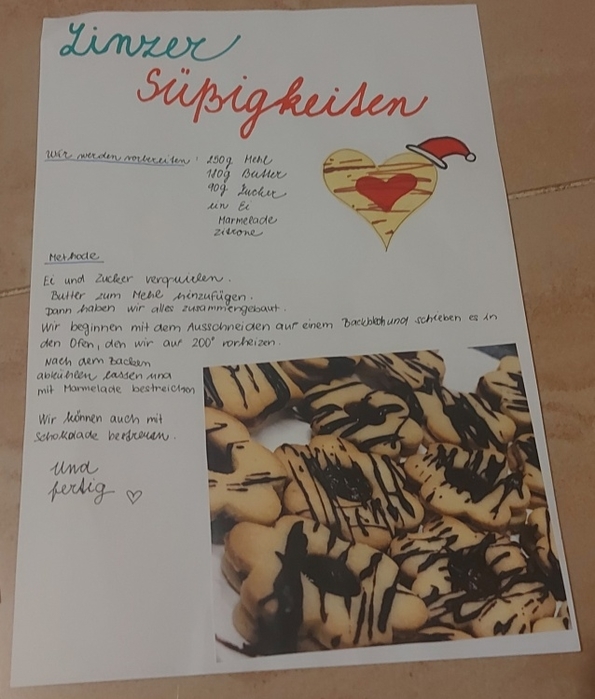 Linzer
Süßigkeiten
Wir werden vorbereiten: 250g Mehl
180g Butter
90g Zucker
ein Ei
Marmelade
zitrone
Methode
Ei und Zucker verquirlen.
Butter zum Mehl hinzufügen.
Dann haben wir alles zusammengebaut.
Wir beginnen mit dem Ausschneiden auf einem Backblech und schieben es in
den Ofen, den wir auf 200° vorheizen.
Nach dem Backen
abkühlen lassen und
mit Marmelade bestreichen
Wir können auch mit
Schokolade bestreuen.
Und
fertig ♡